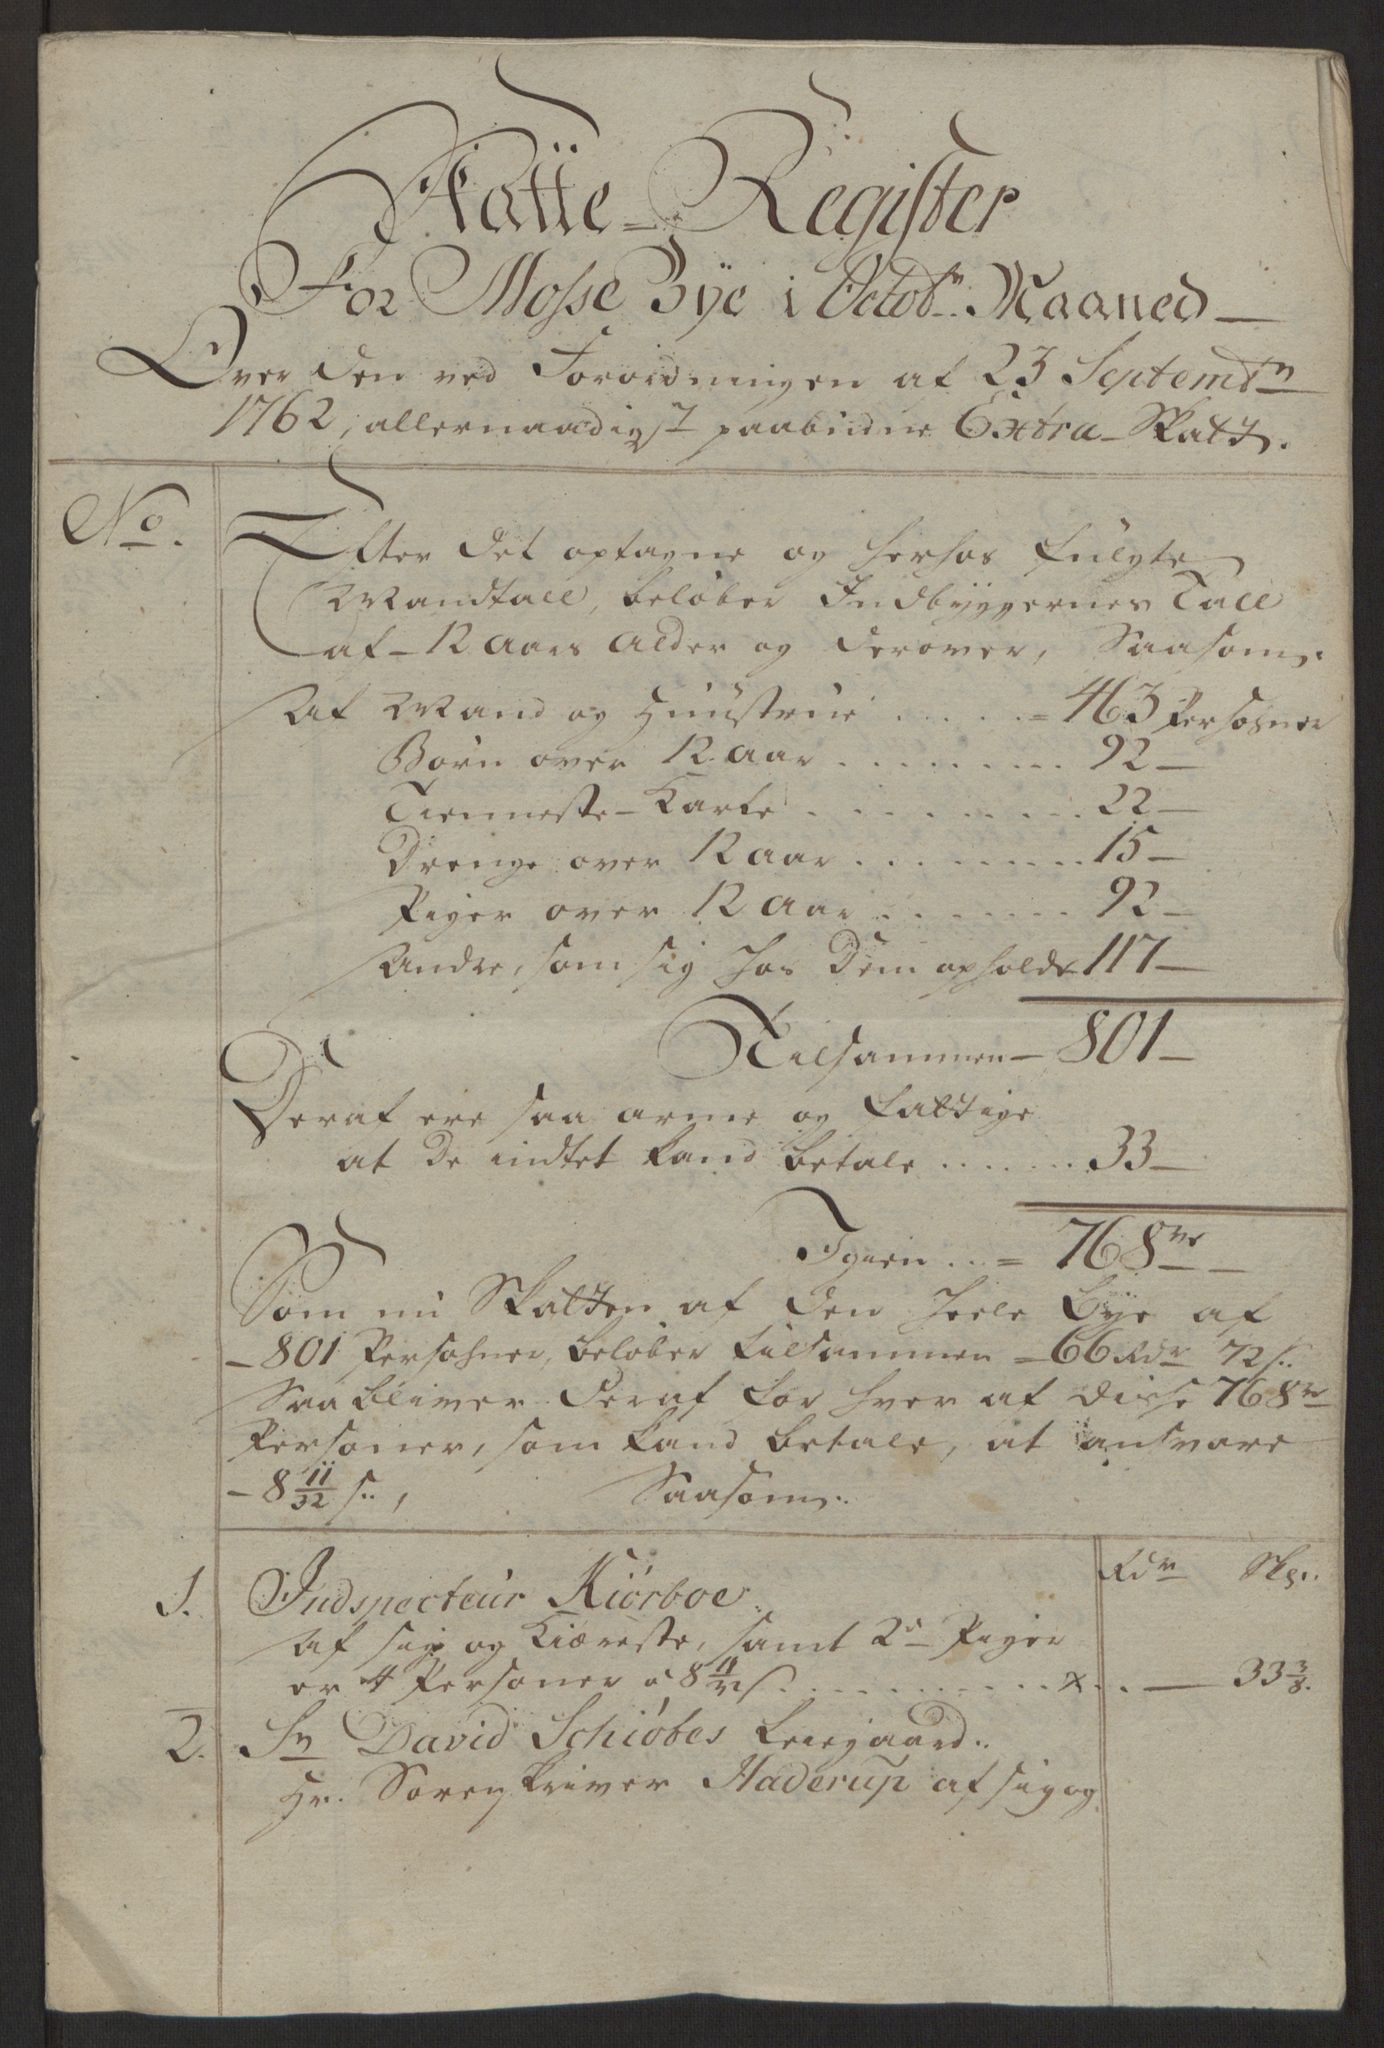 Skatte-Register
For Mosse Bye i Octobr: Maaned
Over den ved Forordningen af 23 Septembr
1762, allernaadigst paabudne Extra-Skatt.
No.
Efter det optagne og herhos fulgte
Mandtall, beløber Indbyggernes Tall
af 12 Aars Alder og derover, Saasom:
Af Mand og Huustrue ..... = 463 Persohner
Børn over 12 Aar ......... 92
Tienneste-Karle ......... 22
Drenge over 12 Aar ........ 15
Piger over 12 Aar ....... 92
Andre, som sig hos Dem opholde 117
Tilsammen 801
Deraf ere saa arme og fattige
at De indtet kand betale ....... 33
Igien .. = 768 de
Som nu Skatten af den heele Bye af
801 Persohner, beløber tilsammen = 66 Rdr 72 s:
Saa bliver deraf for hver af disse 768 de
Personer, som kand betale, at ansvare
8 11/32 s:, Saasom:
Rdr Skl:
1. Indspecteur Kiørboe
Af sig og Kiæreste, samt 2de Piger
er 4 Personer a 8 11/32 s. .......... 33 3/8.
2. Sr David Schiøtes Leiegaard:
Hr. Sorenskriver Haderup af sig og